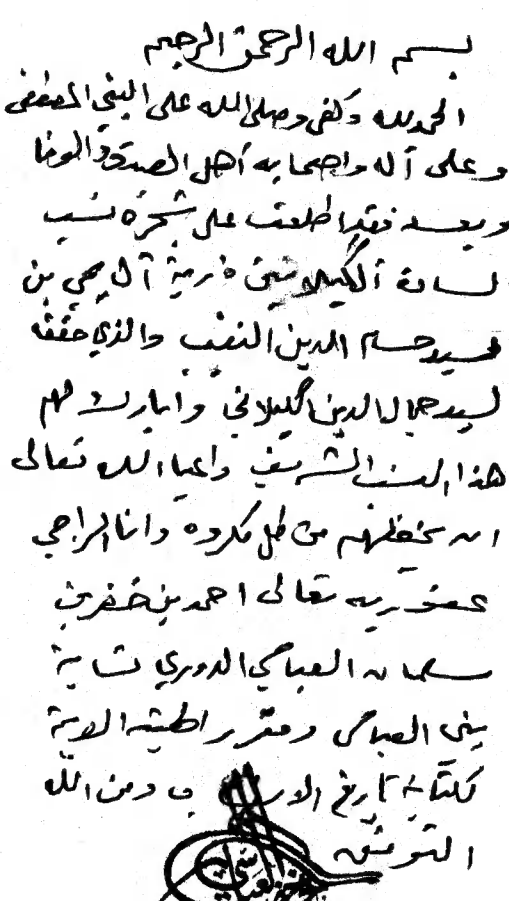 بسم الله الرحمن الرحيم
الحمد لله وكفى وصلى الله على النبي المصطفى
وعلى آله واصحابه أهل الصدق والوفا
وبعد فقد اطلعت على شجرة نسب
لسادة الكيلانيين ذرية آل يحيى بن
لسيد حسام الدين النقيب والذي حققه
لسيد جمال الدين الكيلاني وابارك لهم
هذا النسب الشريف داعيا الله تعالى
ان يحفظهم من كل مكروه وانا الراجي
عفو ربه تعالى احمد بن خضر بن
سلمان العباسي الدوري نسابة
بني العباس
لكتابة تاريخ ومن الله
التوفيق